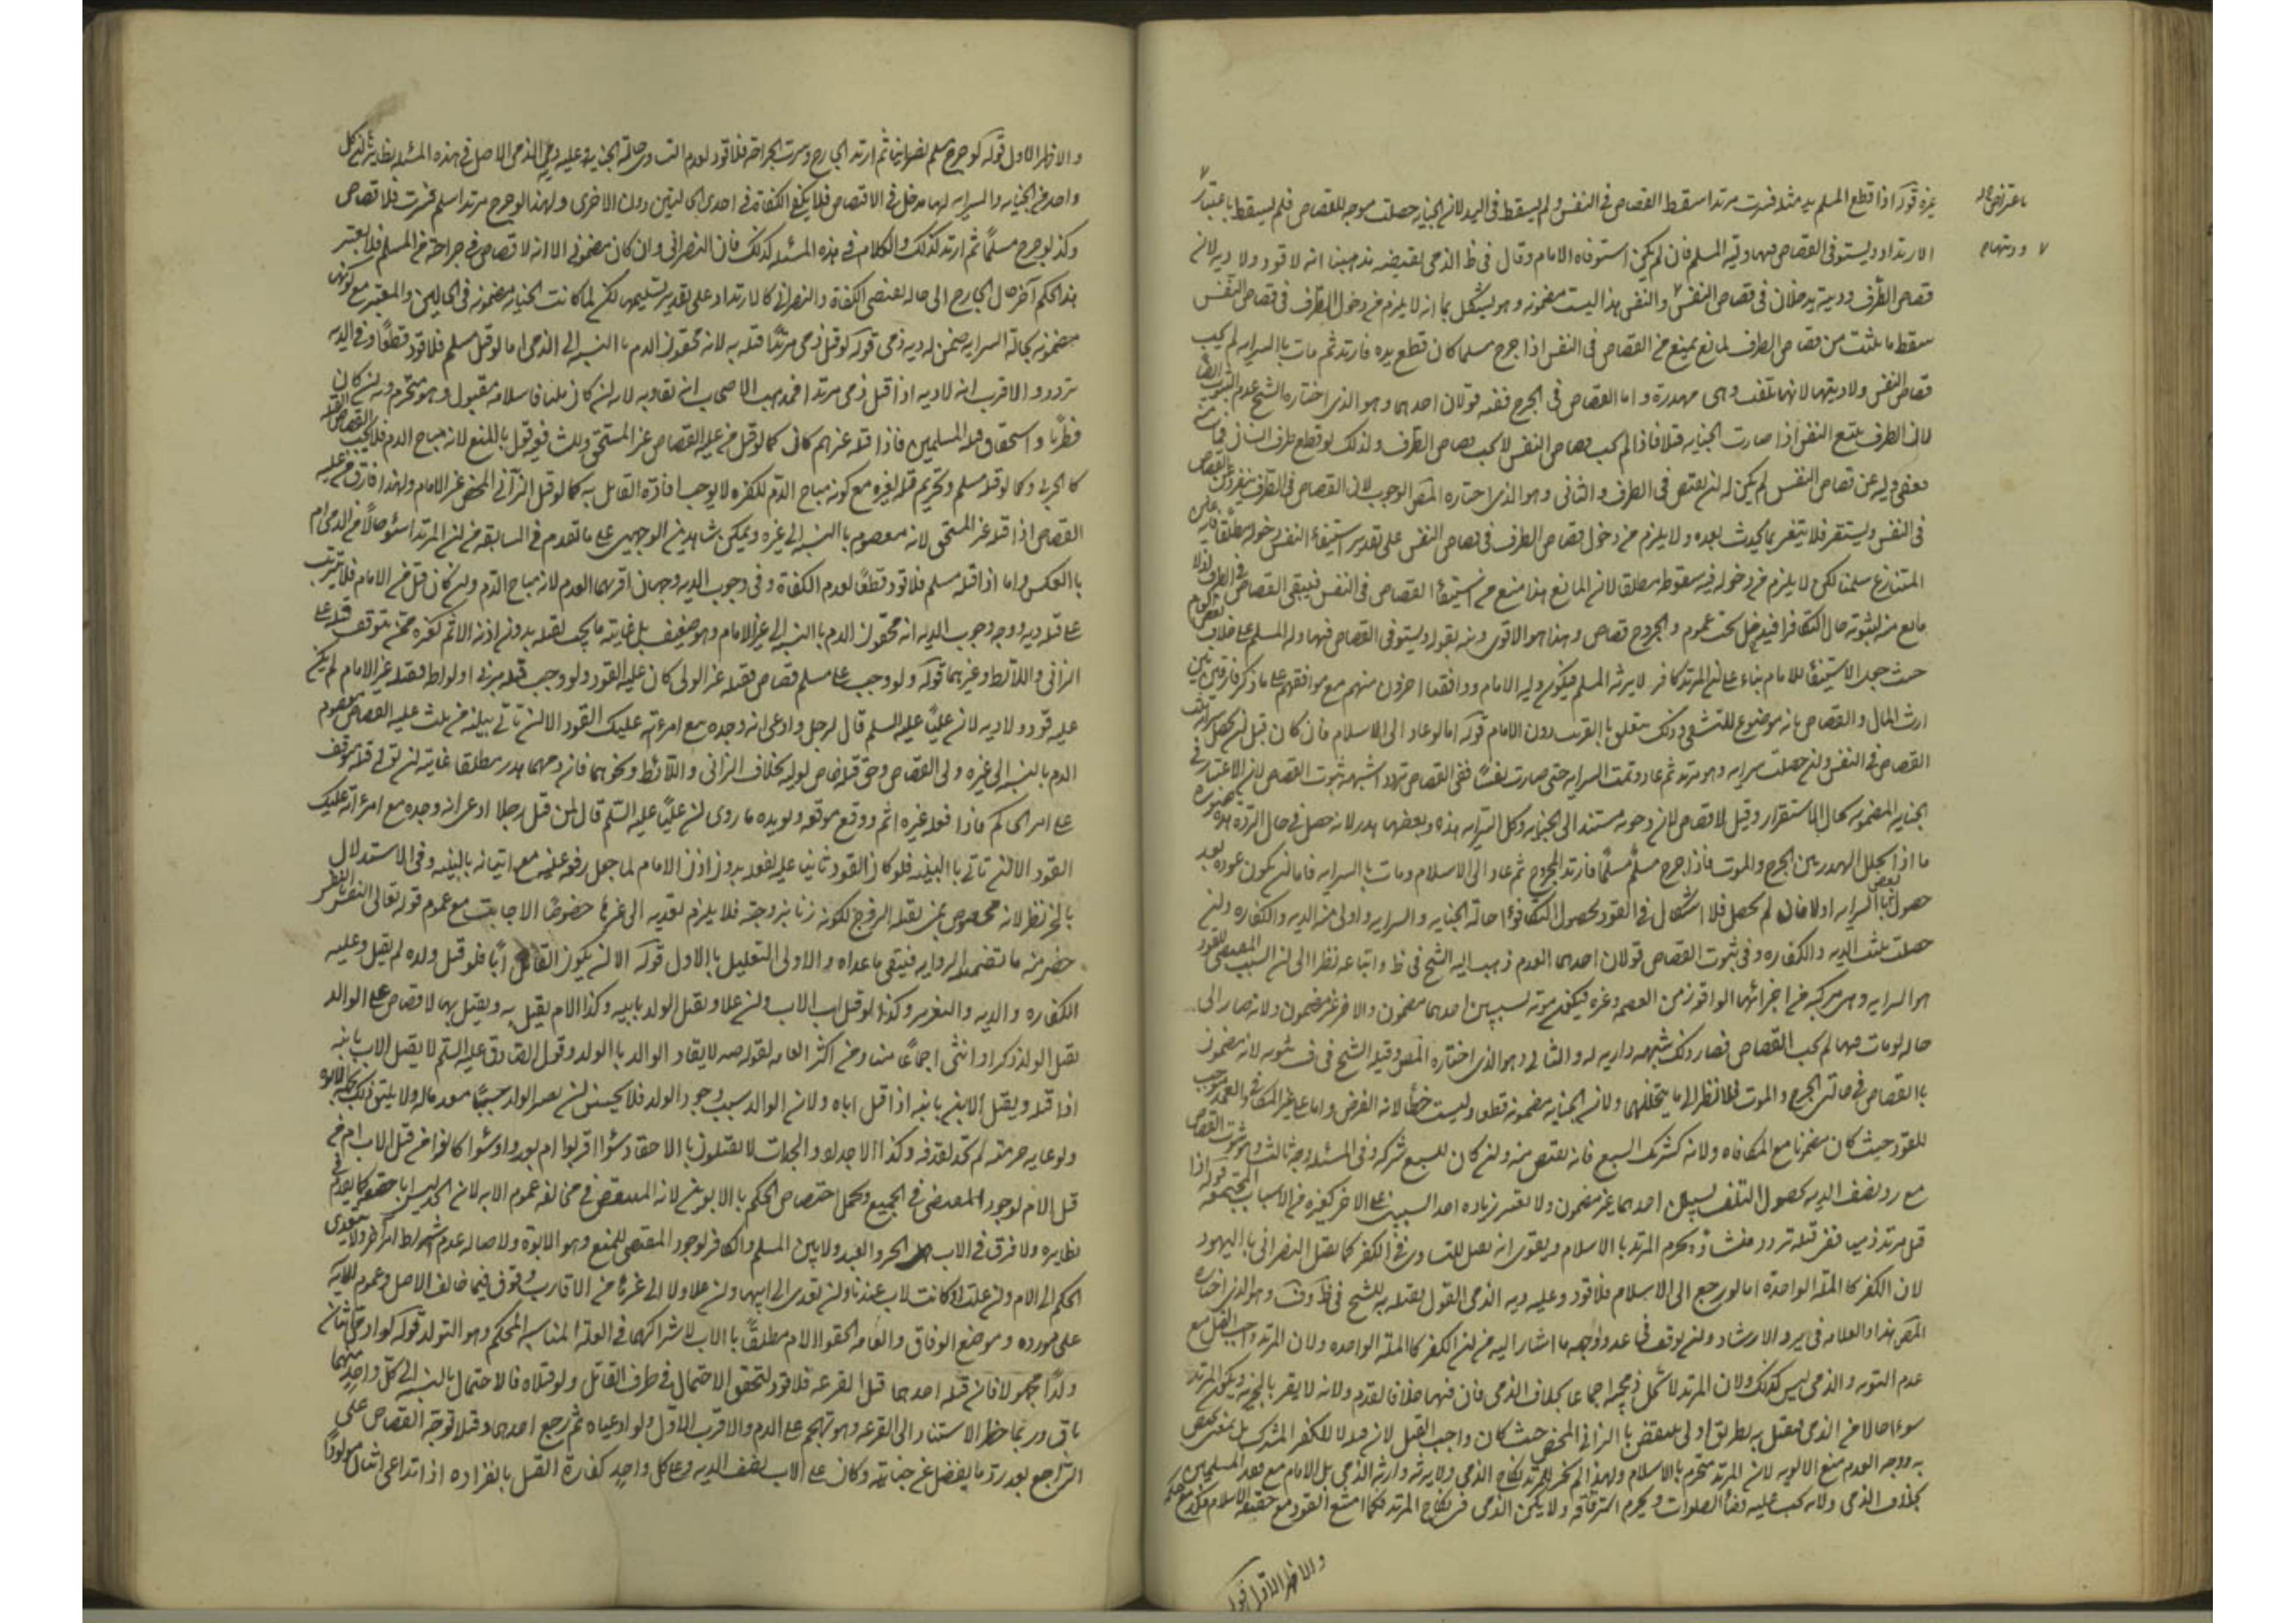 غيره قوله اذا قطع المسلم يد مثله فسرت مرتدا سقط القصاص في النفس ولم يسقط في اليد لان الجناية حصلت موجبه للقصاص فلم يسقط باعتبار
الارتداد ويستوفى القصاص فيها وليه المسلم فان لم يكن استوفاه الامام وقال في ط الذي يقتضيه مذهبنا انه لا قود ولا دية لان
قصاص الطرف وديته يدخلان في قصاص النفس والنفس هنا ليست مضمونه وهو يشكل بما انه لا يلزم من دخول الطرف في قصاص النفس
سقوط ما ثبت من قصاص الطرف لمانع يمنع من القصاص في النفس اذا جرح مسلما كان قطع يده فارتد ثم مات بالسرايه لم يجب
قصاص النفس ولا ديتها لانها تلفت وهى مهدرة واما القصاص في الجرح ففيه قولان احدهما وهو الذى اختاره الشيخ عدم الثبوت
لان الطرف يتبع النفس اذا صارت الجنايه قتلا فاذا لم يجب قصاص النفس لا يجب قصاص الطرف ولذلك لو قطع طرف انسان
فعفى وليه عن قصاص النفس لم يكن له ان يقتص في الطرف والثانى وهو الذى اختاره المص الوجوب لان القصاص في الطرف
في النفس ويستقر فلا يتغير بما يحدث بعده ولا يلزم من دخول قصاص الطرف في قصاص النفس على تقدير استيفاء النفس دخوله مطلقا
المتنازع سلمنا لكن لا يلزم من دخوله فيه سقوطه مطلقا لان المانع هنا منع من استيفاء القصاص في النفس فيبقى القصاص في الطرف
مانع من ثبوته حال التكافؤ فيدخل تحت عموم والجروح قصاص وهذا هو الاقوى ونبه بقوله ويستوفى القصاص فيها وليه المسلم على خلاف
حيث جعل الاستيفاء للامام بناء على ان المرتد كافر لا يرثه المسلم فيكون وليه الامام ووافقنا اخرون منهم مع موافقتهم على ما ذكر فارقين بين
ارث المال والقصاص بانه موضوع للتشفى وذلك يتعلق بالقريب دون الامام قوله اما لو عاد الى الاسلام فان كان قبل ان يحصل سرايه
القصاص في النفس وان حصلت سرايه وهو مرتد ثم عاد وتمت السرايه حتى صارت نفسا ففى القصاص تردد اشبهه ثبوت القصاص لان الاعتبار في
الجنايه المضمونه بحال الاستقرار وقيل لا قصاص لان وجوبه مستند الى الجنايه وكل السرايه وهذه بعضها هدر لانه حصل في حال الردة
ما اذا تخلل المهدر بين الجرح والموت فاذا جرح مسلم مسلما فارتد المجروح ثم عاد الى الاسلام ومات بالسرايه فاما ان يكون عوده بعد
حصول السرايه اولا فان لم يحصل فلا اشكال في القود لحصول التكافؤ حالة الجنايه والسرايه واولى منه الديه والكفاره وان
حصلت ثبتت الديه والكفاره وفى ثبوت القصاص قولان احدهما العدم ذهب اليه الشيخ في ط واتباعه نظرا الى ان السبب المقتضى للقود
هو السرايه وهى مركبه من اجزائها الواقع زمن العصمه وغيره فيكون موته بسببين احدهما مضمون والاخر غير مضمون ولانه صار الى
حاله لو مات فيها لم يجب القصاص فصار ذلك شبهه دارئه له والثانى وهو الذى اختاره المص وقبله الشيخ في ف ثبوته لانه مضمون
بالقصاص في حالتى الجرح والموت فلا نظر الى ما يتخللهما ولان الجنايه مضمونه قطعا وليست خطأ لانه الفرض
للقود حيث كان مضمونا مع المكافاه ولانه كشريك السبع فانه يقتص منه وان كان للسبع شركه وفى المسئله وجه ثالث وهو ثبوت القصاص
مع رد نصف الديه لحصول التلف بسببين احدهما غير مضمون ولا تعتبر زياده احد السببين على الاخر كغيره من الاسباب المجتمعه قوله اذا
قتل مرتد ذميا ففى قتله تردد منشاؤه تحرم المرتد بالاسلام ويقوى انه يقتل للتساوى في الكفر كما يقتل النصرانى باليهود
لان الكفر كالملة الواحدة اما لو رجع الى الاسلام فلا قود وعليه دية الذمى القول بقتله به للشيخ في ط وف وهو الذى اختاره
المص هنا والعلامه في يرو الارشاد وان توقف في عد ووجهه ما اشار اليه من ان الكفر كالملة الواحده ولان المرتد واجب القتل مع
عدم التوبه والذمى ليس كذلك ولان المرتد لا تحل ذبيحته اجماعا بخلاف الذمى فان فيها خلافا تقدم ولانه لا يقر بالجزيه فيكون المرتد
سوءا حالا من الذمى فيقتل به بطريق اولى ينتقض بالزانى المحصن حيث كان واجب القتل
به ووجه العدم منع الاولويه لان المرتد متحرم بالاسلام ولهذا لم يجز للمرتد نكاح الذمى ولا يرثه وارثه الذمى بل الامام مع فقد المسلمين
بخلاف الذمى ولانه يجب عليه قضاء الصلوات ويحرم استرقاقه ولا يمكن الذمى من نكاح المرتدة فكما امتنع القود مع حقيقه الاسلام
والاظهر الاول قوله
باعتراض حاله
وديتهما
والاظهر الاول قوله لو جرح مسلم نصرانيا ثم ارتد الجارح وسرت الجراحه فلا قود لعدم التساوى حالة الجنايه وعليه دية الذمى الاصل في هذه المسئله نظير ان لكل
واحد من الجنايه والسرايه لهما مدخل في الاقتصاص فلا يكفى الكفاءة في احدى الحالتين دون الاخرى ولهذا لو جرح مرتدا اسلم فسرت فلا قصاص
وكذا لو جرح مسلما ثم ارتد كذلك والكلام في هذه المسئله كذلك فان النصرانى وان كان مضمونا الا انه لا قصاص في جراحته من المسلم فلا يعتبر
هذا الحكم اخر حال الجارح الى حاله يقتضى الكفاءة والنصرانى كالارتداد على تقدير تسليمه لكن لما كانت الجنايه مضمونه في الحالين والمعتبر مع كونها
مضمونه بحالة السرايه ضمن له دية ذمى قوله لو قتل ذمى مرتدا قتل به لانه محقون الدم بالنسبه الى الذمى اما لو قتله مسلم فلا قود قطعا وفى الديه
تردد والاقرب انه لا دية اذا قتل ذمى مرتدا فمذهب الاصحاب انه يقاد به لانه ان كان مليا فاسلامه مقبول وهو متحرم وان كان
فطريا واستحقاق قتله للمسلمين فاذا قتله غيرهم كان كما لو قتل من عليه القصاص غير المستحق وللشافعى قول بالمنع لانه مباح الدم فلا يجب القصاص بقتله
كالحربى وكما لو قتله مسلم وتحريم قتله لغيره مع كونه مباح الدم لكفره لا يوجب افادة القاتل به كما لو قتل الزانى المحصن غير الامام ولهذا فارق من عليه
القصاص اذا قتله غير المستحق لانه معصوم بالنسبه الى غيره ويمكن بناء هذين الوجهين على ما تقدم في السابقه من ان المرتد اسوء حالا من الذمى ام
بالعكس واما اذا قتله مسلم فلا قود قطعا لعدم الكفاءة وفى وجوب الديه وجهان اقربهما العدم لانه مباح الدم وان كان قتله من الامام فلا يترتب
على قتله ديه ووجه وجوب الديه انه محقون الدم بالنسبه الى غير الامام وهو ضعيف بل غايته ما يجب بقتله بدون اذنه الاثم كغيره ممن يتوقف قتله على
الزانى واللائط وغيرهما قوله ولو وجب على مسلم قصاص فقتله غير الولى كان عليه القود ولو وجب قتله بزنا او لواط فقتله غير الامام لم يكن
عليه قود ولا دية لان عليا عليه السلم قال لرجل وادعى انه وجده مع امرءته عليك القود الا ان تاتى ببينه من يثبت عليه القصاص معصوم
الدم بالنسبه الى غيره ولى القصاص وحق قتله خاص لوليه بخلاف الزانى واللائط ونحوهما فان دمهما هدر مطلقا غايته ان تولى قتله موقف
على امر الحاكم فاذا فعله غيره اثم ووقع موقعه ويؤيده ما روى ان عليا عليه السلم قال لمن قتل رجلا ادعى انه وجده مع امرءاته عليك
القود الا ان تاتى بالبينه فلو كان القود ثابتا عليه لفعله بدون اذن الامام لما جعل رفعه عنه مع اتيانه بالبينه وفى الاستدلال
بالخبر نظر لانه مخصوص بمن يقتله الزوج لكونه زنا بزوجته فلا يلزم تعديه الى غيرها خصوصا الاجانب مع عموم قوله تعالى النفس بالنفس
خص منه ما تضمنه الروايه فيبقى ما عداه والاولى التعليل بالاول قوله الا ان يكون القاتل ابا فلو قتل ولده لم يقتل وعليه
الكفاره والديه والتعزير وكذا لو قتله اب الاب وان علا ويقتل الولد بابيه وكذا الام يقتل به ويقتل بها لا قصاص على الوالد
بقتل الولد ذكرا او انثى اجماعا منا ومن اكثر العامه لقوله صه لا يقاد الوالد بالولد وقول الصادق عليه السلم لا يقتل الاب بابنه
اذا قتله ويقتل الابن بابيه اذا قتل اباه ولان الوالد سبب وجود الولد فلا يحسن ان يصير الولد سببا معدما له ولا يليق ذلك بحال الابوه
ولرعايه حرمته لم يحد لقذفه وكذا الاجداد والجدات لا يقتلون بالاحفاد سواء اقربوا ام بعدوا وسواء كانوا من قبل الاب ام من
قبل الام لوجود المقتضى في الجميع ويحتمل اختصاص الحكم بالاب
نظايره ولا فرق في الاب بين الحر والعبد ولا بين المسلم والكافر لوجود المقتضى للمنع وهو الابوة ولاصاله عدم اشتراط امر اخر ولا يتعدى
الحكم الى الام وان علت او كانت لاب عندنا ولن تعدى الى ابيها وان علا ولا الى غيرها من الاقارب وقوف فيما خالف الاصل وعموم الايه
على مورده وموضع الوفاق والعامه الحقوا الام مطلقا بالاب لاشتراكهما في العلة المناسبه للحكم وهو التولد قوله لو ادعى اثنان
ولدا مجهولا فان قتله احدهما قبل القرعه فلا قود لتحقق الاحتمال في طرف القاتل ولو قتلاه فالاحتمال بالنسبه الى كل واحد منهما
باق وربما خطر الاستناد الى القرعه وهو تهجم على الدم والاقرب الاول ولو ادعياه ثم رجع احدهما وقتلاه توجه القصاص على
الراجع بعد رد ما يفضل عن جنايته وكان على الاب نصف الديه وعلى كل واحد كفارة القتل بانفراده اذا تداعى اثنان مولودا